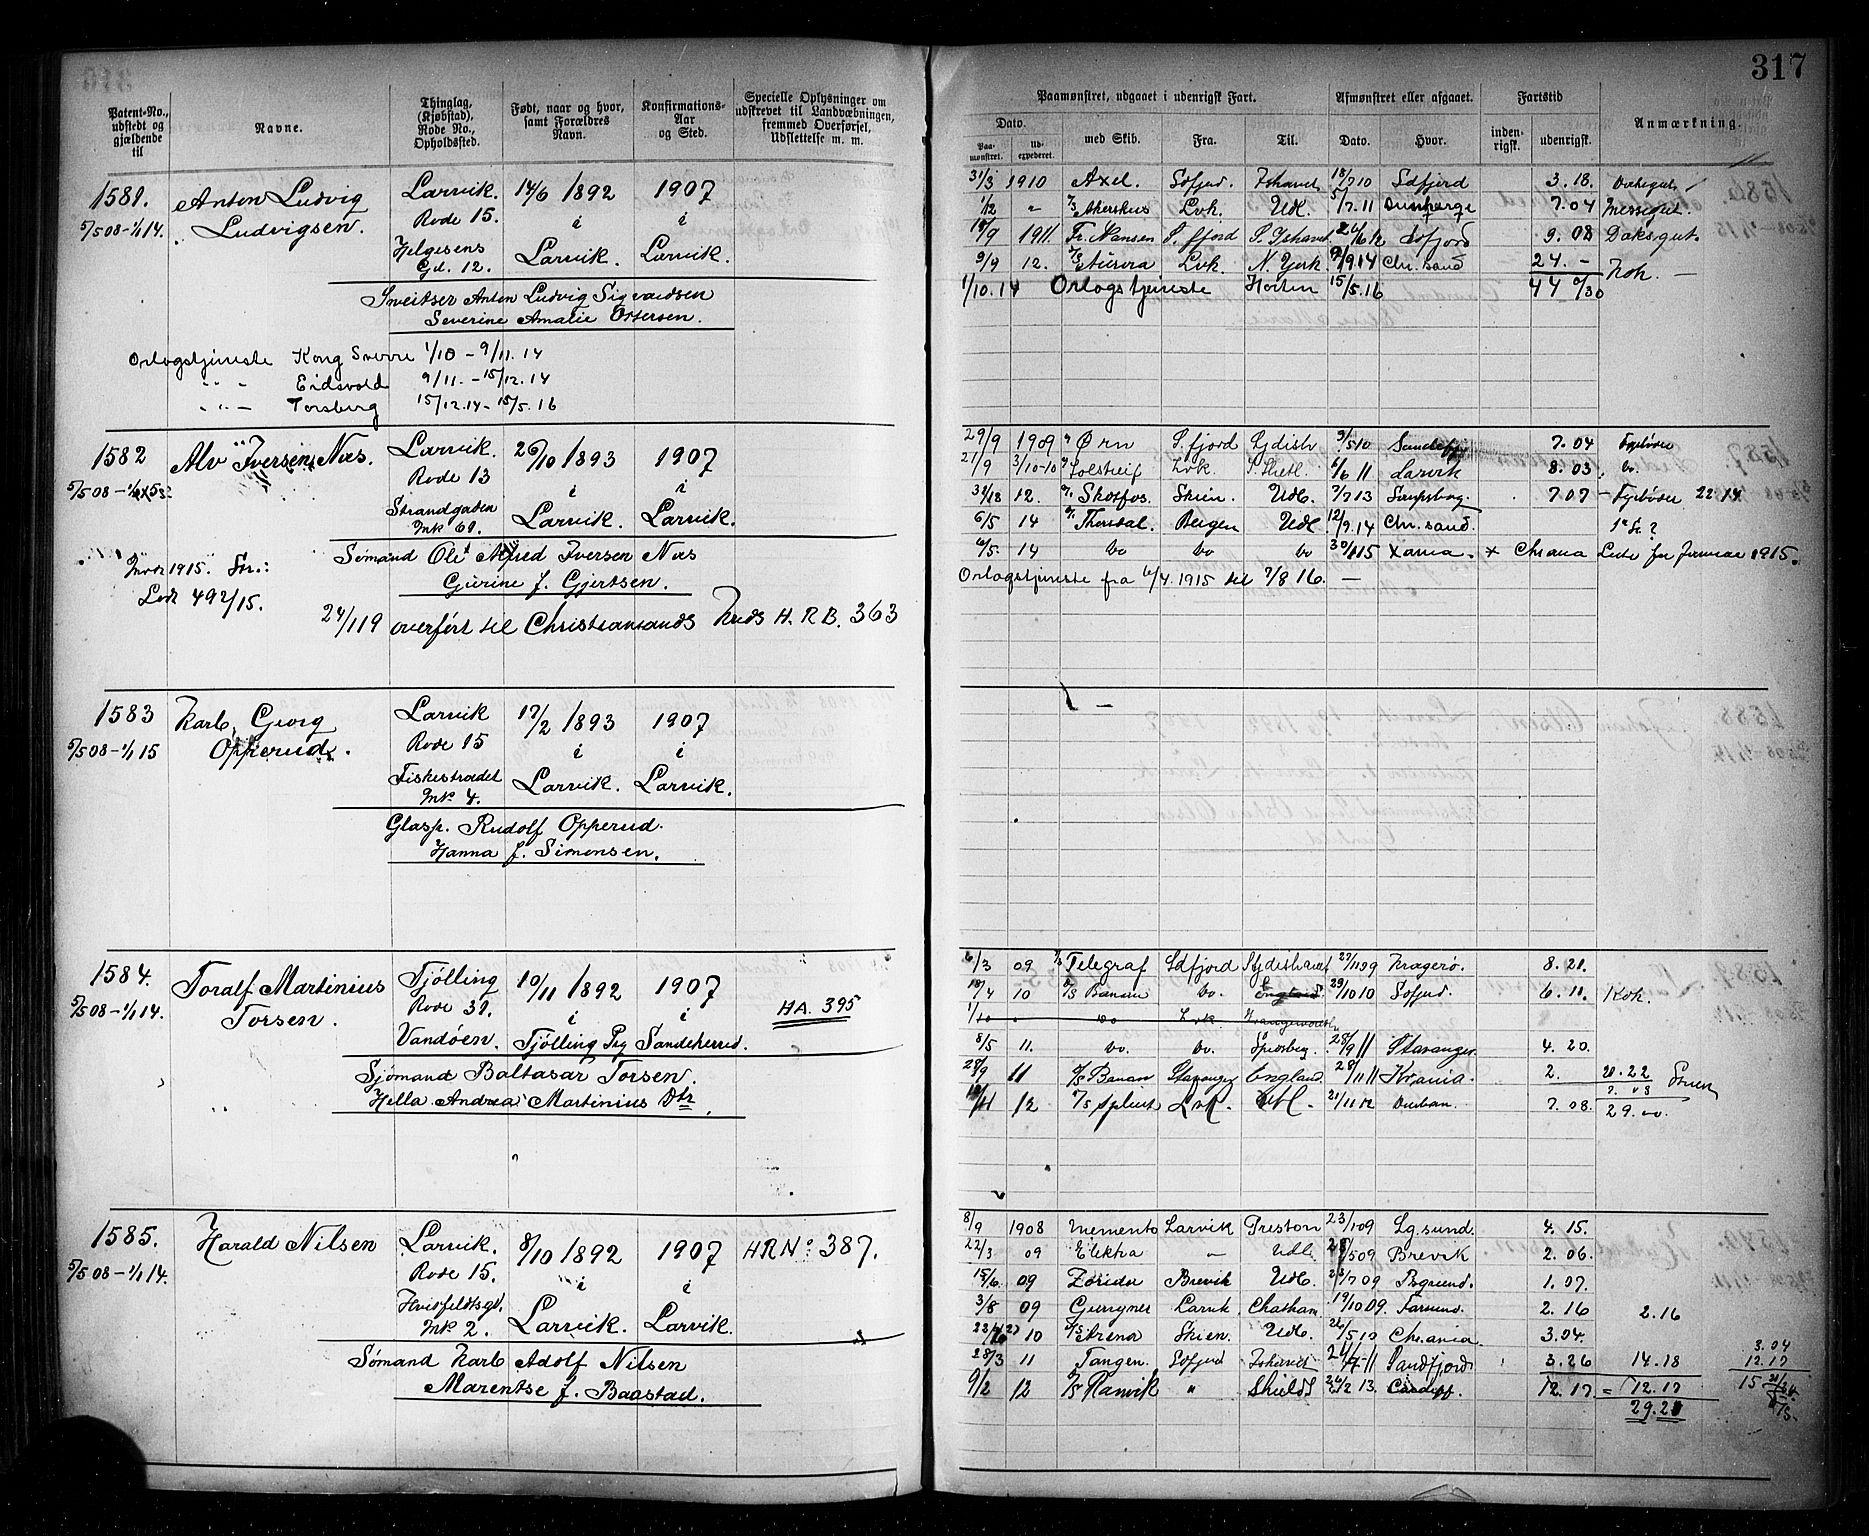 317
Patent-No., udstedt og gjældende til
Navne.
Thinglag, (Kjøbstad), Rode No., Opholdssted.
Født, naar og hvor, samt Forældres Navn.
Konfirmations-Aar og Sted.
Specielle Oplysninger om udskrevet til Landværningen, fremmed Overførsel, Udslettelse m. m.
Paamønstret, udgaaet i udenrigsk Fart.
Afmønstret eller afgaaet.
Fartstid
Dato.
Paamønstret.
Udexpederet.
med Skib.
Fra.
Til.
Dato.
Hvor.
indenrigsk.
udenrigsk.
Anmærkning.
1581. Anton Ludvig Larvik. 14/6 1892 1907
5/5 08 - 1/1 14. Ludvigsen. Rode 15. i i
Helgesens Gd. 12. Larvik. Larvik.
Anton Ludvig Sigvardsen
Severine Amalie Ottersen.
Orlogstjeneste Kong Sverre 1/10 - 9/11. 14
" - Eidsvold 9/11. - 15/12. 14
" - Torsberg 15/12. 14 - 15/5. 16
31/3 1910 Axel. Sdfjord. Ishavet 18/7 10 Sdfjord 3. 18.
1/12 " Akershus Lvk. Udl. 5/7. 11 7. 04
19/9 1911. Fr. Nansen S. fjord S. Ishavet Sdfjord 9. 08
9/9 12. Lvk. N. York. 9/9. 14 Chr. sand 24. - Kok. -
1/10. 14 Orlogstjeneste Horten 15/5. 16 44 0/30
1582 Alv Iversen Næs. Larvik. 26/10 1893 1907
5/5 08 - Rode 13 i i
Strandgaden Mk 69. Larvik. Larvik.
Sømand Ole Alfred Iversen Næs
Gurine f. Gjertsen.
1915.
492/15.
24/1 19 overført til Christiansands Kreds H. R. B. 363
29/9 1909 Ørn S. fjord Sydishv 9/5 10 7. 04 Fyrbøder
21/9 3/10-10 Solstreif Lvk. 6/6 11 Larvik 8. 03 do.
12. Skotfos. Skien. Udl. 7/7 13 Sarpsborg. 7 07 - Fyrbøder 22. 14.
6/5 14 Thorsdal. Bergen Udl 12/9. 14 Chr. sand.
6/5. 14 do do do 30/1 15 Xania. + Chrania Liste for Januar 1915.
Orlogstjeneste fra 6/4. 1915 til 7/8 16. -
1583 Karl Georg Larvik 17/2 1893 1907
5/5 08 - 1/1 15 Opperud. Rode 15 i i
Fiskestrædet Mk. 4. Larvik. Larvik.
Glasp. Rudolf Opperud.
Hanna f. Simensen.
1584. Toralf Martinius Tjølling 10/11 1892 1907
5/5 08 - 1/1 14. Torsen. Rode 39. i i HA. 395
Vandöen. Tjølling Pg Sandeherred.
Sjømand Baltasar Torsen.
Hella Andrea Martinius Dtr.
6/3 09 Telegraf Sdfjord Sydishavet 27/11 09 Kragerø. 8. 21.
18/4 10 D/S Banan do. England 29/10 10 Sdfjord. 6. 11. Kok.
1/10 " do Lvk.
8/5 11. do. do. Spidsberg. 28/9 11 Stavanger. 4. 20.
28/9 11 D/S Banan Stavanger England. 28/11 11 Krania. 2. 20. 22
12 Splint Lvk. Udl. 21/11 12 Durban. 7. 08. 29. 00.
1585. Harald Nilsen Larvik. 8/10 1892 1907 HR No 387.
5/5 08 - 1/1 14. Rode 15. i i
Hvidfeldtsgd. Mk 2. Larvik. Larvik.
Sømand Karl Adolf Nilsen
Marentse f. Baastad.
8/9 1908 Memento Larvik Preston 23/1 09 Lg. sund. 4. 15.
22/3 09 Elektra " Udl. Brevik 2. 06.
15/6 09 Zarida Brevik Udl. Porsgrund. 1. 07.
3/8 09 Larvik Chatham. 19/10 09. Farsund. 2. 16 2. 16
10 Skien. Udl. 26/5 10 Chr. ania. 3. 04. 3. 04
28/3 11 Tangen. Sdfjord Ishavet Sandfjord 3. 26 14. 18 12. 17
9/2 12 D/S Ranvik " Shields 26/2 13. Cardiff. 12. 17. = 12. 17
29. 21